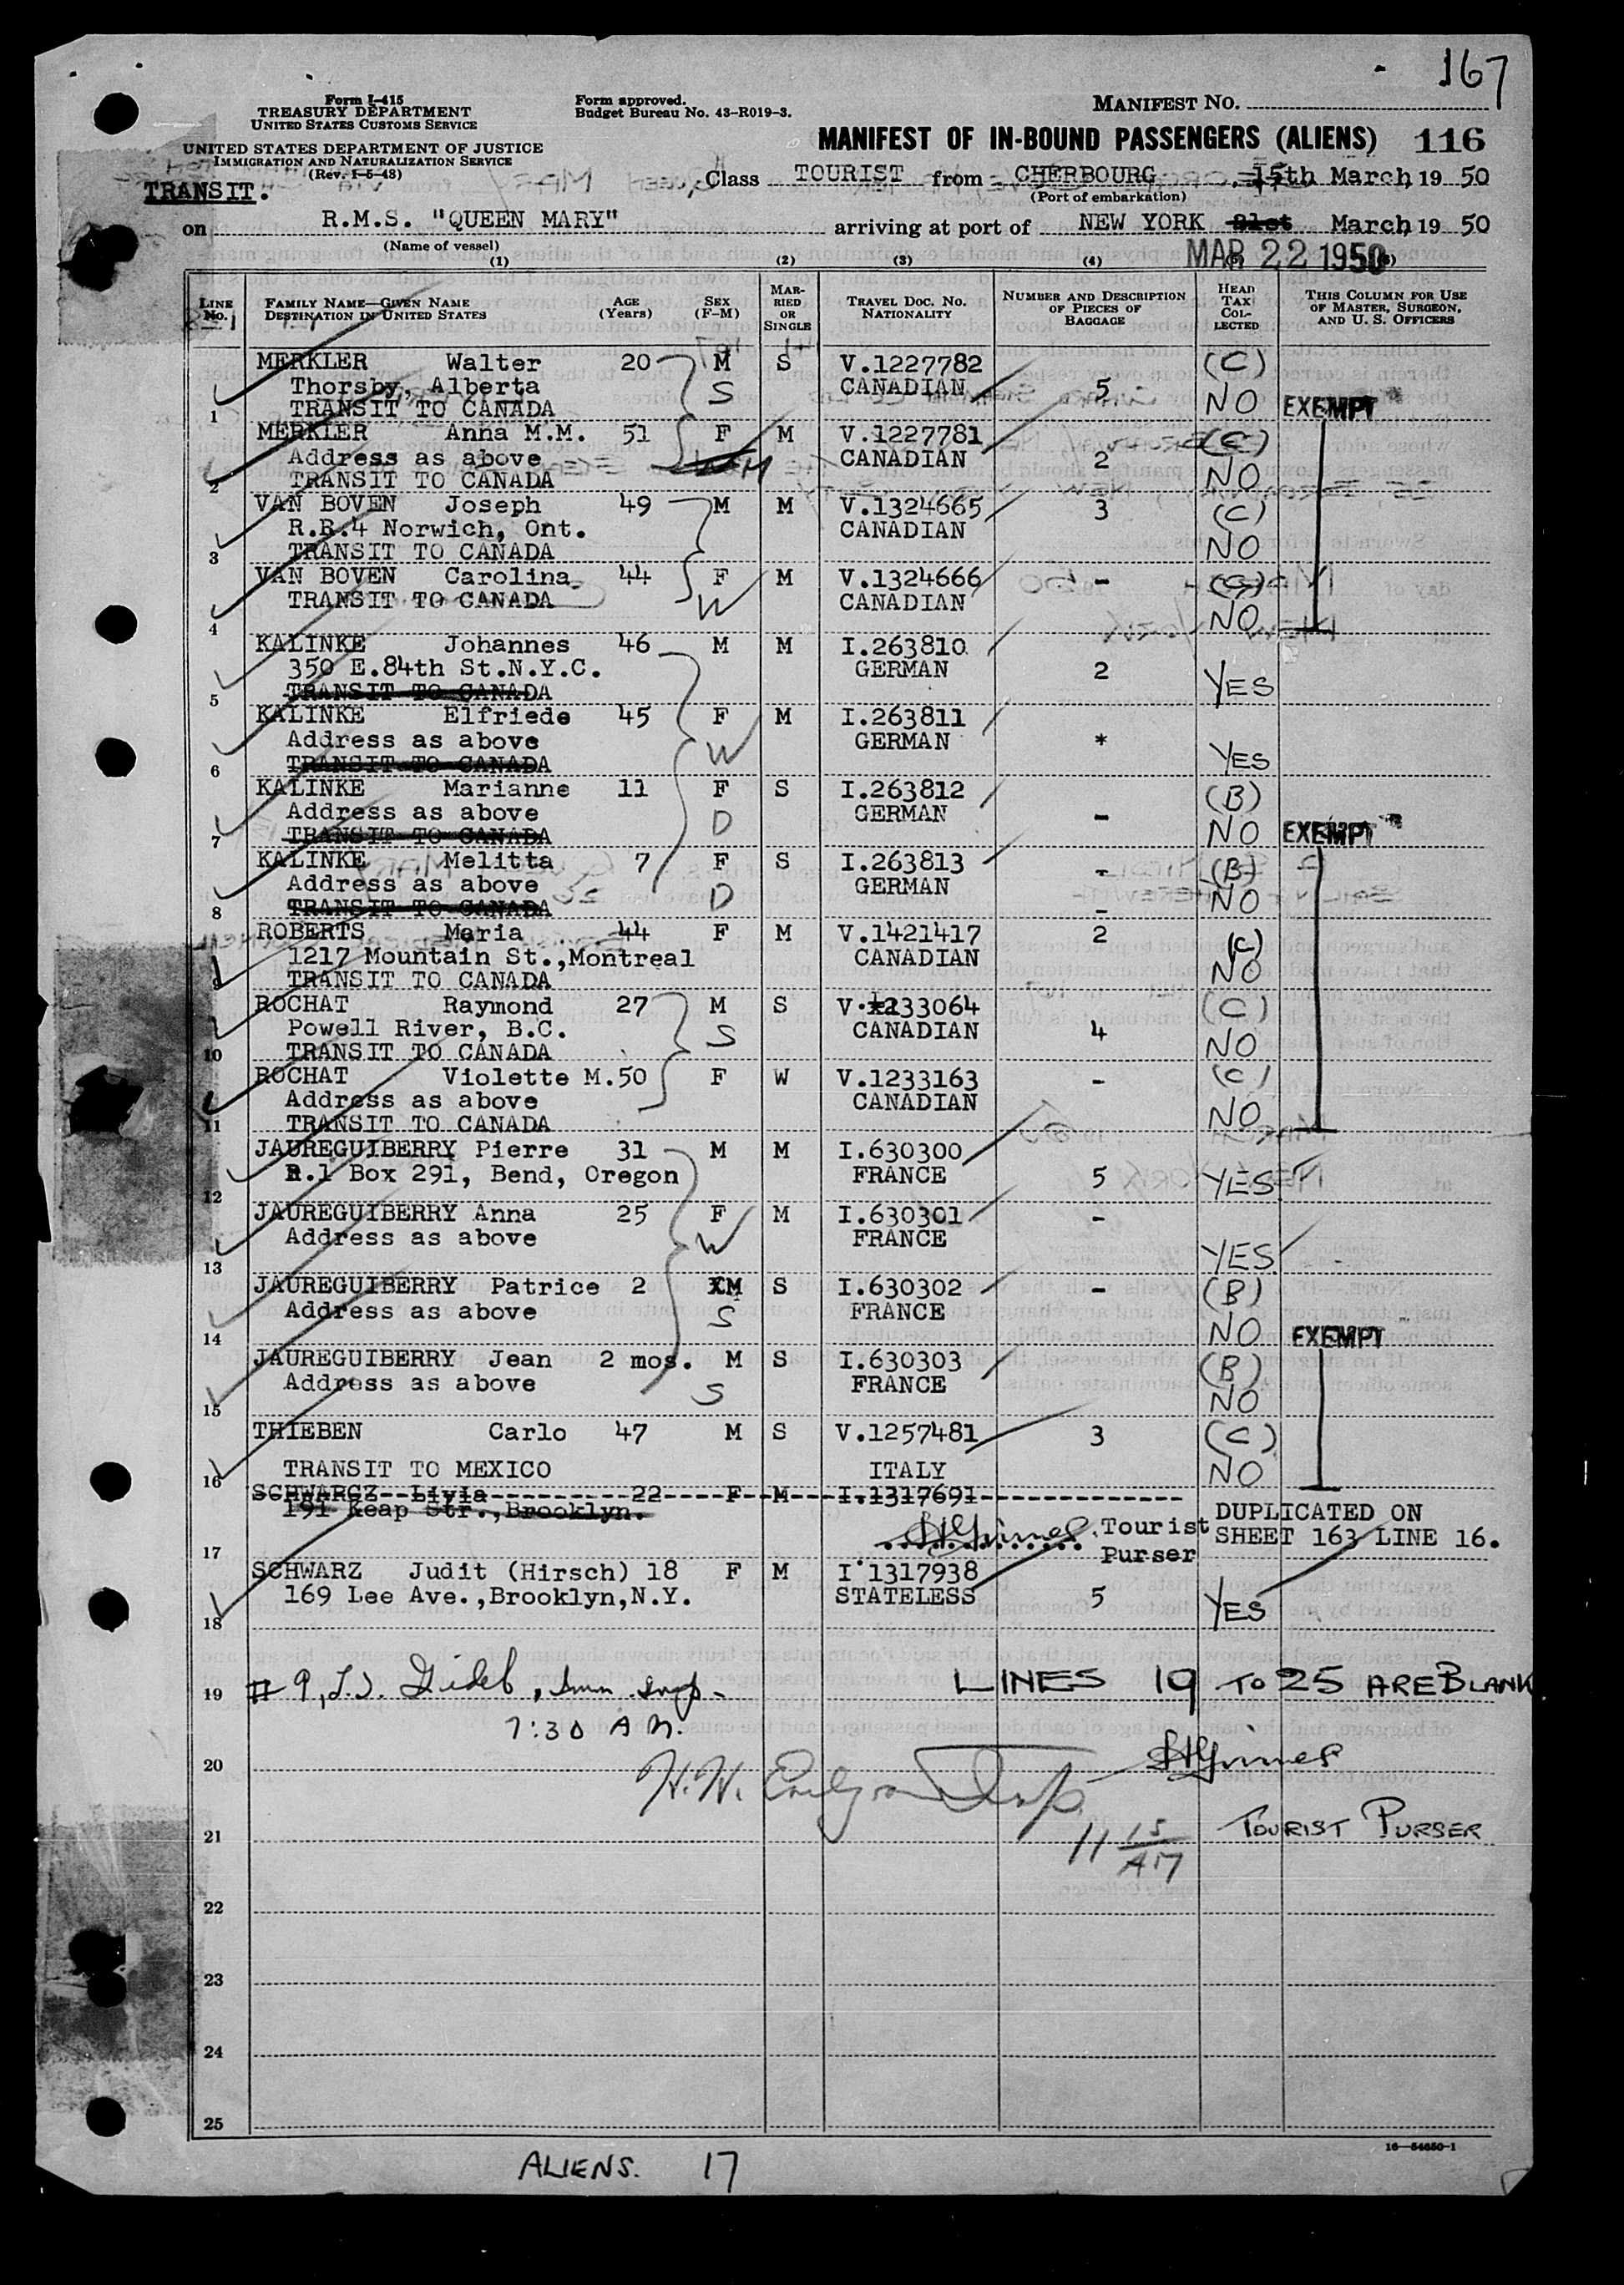 167
Form I-415
TREASURY DEPARTMENT
UNITED STATES CUSTOMS SERVICE
Form approved.
Budget Bureau No. 43-R019-3.
MANIFEST No.
UNITED STATES DEPARTMENT OF JUSTICE
IMMIGRATION AND NATURALIZATION SERVICE
(Rev. 1-5-48)
MANIFEST OF IN-BOUND PASSENGERS (ALIENS) 116
TRANSIT.
Class TOURIST from CHERBOURG, 15th March, 19 50
(Port of embarkation)
on R.M.S. "QUEEN MARY" arriving at port of NEW YORK 21st March, 19 50
(Name of vessel)
MAR 22 1950
(1) (2) (3) (4)
LINE No. FAMILY NAME—GIVEN NAME DESTINATION IN UNITED STATES AGE (Years) SEX (F-M) MARRIED OR SINGLE TRAVEL DOC. No. NATIONALITY NUMBER AND DESCRIPTION OF PIECES OF BAGGAGE HEAD TAX COLLECTED THIS COLUMN FOR USE OF MASTER, SURGEON, AND U. S. OFFICERS
MERKLER Walter 20 M S V.1227782 (C)
Thorsby, Alberta S CANADIAN 5 NO EXEMPT
1 TRANSIT TO CANADA
MERKLER Anna M.M. 51 F M V.1227781 (C)
Address as above M CANADIAN 2 NO
2 TRANSIT TO CANADA
VAN BOVEN Joseph 49 M M V.1324665 3 (C)
R.R.4 Norwich, Ont. CANADIAN NO
3 TRANSIT TO CANADA
VAN BOVEN Carolina 44 F M V.1324666 - (C)
TRANSIT TO CANADA W CANADIAN NO
4
KALINKE Johannes 46 M M I.263810
350 E.84th St.N.Y.C. GERMAN 2 YES
5 TRANSIT TO CANADA
KALINKE Elfriede 45 F M I.263811
Address as above W GERMAN * YES
6 TRANSIT TO CANADA
KALINKE Marianne 11 F S I.263812 (B)
Address as above D GERMAN - NO EXEMPT
7 TRANSIT TO CANADA
KALINKE Melitta 7 F S I.263813 - (B)
Address as above D GERMAN - NO
8 TRANSIT TO CANADA
ROBERTS Maria 44 F M V.1421417 2 (C)
1217 Mountain St.,Montreal CANADIAN NO
9 TRANSIT TO CANADA
ROCHAT Raymond 27 M S V.1233064 (C)
Powell River, B.C. S CANADIAN 4 NO
10 TRANSIT TO CANADA
ROCHAT Violette M.50 F W V.1233163 - (C)
Address as above CANADIAN NO
11 TRANSIT TO CANADA
JAUREGUIBERRY Pierre 31 M M I.630300
R.1 Box 291, Bend, Oregon FRANCE 5 YES
12
JAUREGUIBERRY Anna 25 F M I.630301 -
Address as above W FRANCE YES
13
JAUREGUIBERRY Patrice 2 XM S I.630302 - (B)
Address as above S FRANCE NO EXEMPT
14
JAUREGUIBERRY Jean 2 mos. M S I.630303 (B)
Address as above S FRANCE NO
15
THIEBEN Carlo 47 M S V.1257481 3 (C)
16 TRANSIT TO MEXICO ITALY NO
SCHWARCZ Livia 22 F M I.1317691
191 Keap Str.,Brooklyn. DUPLICATED ON
Tourist SHEET 163 LINE 16.
17 Purser
SCHWARZ Judit (Hirsch) 18 F M I 1317938
169 Lee Ave.,Brooklyn,N.Y. STATELESS 5 YES
18
19 # 9, LINES 19 TO 25 ARE BLANK
7:30 AM.
20
21 11 15 AM TOURIST PURSER
22
23
24
25
16—54650-1
ALIENS. 17